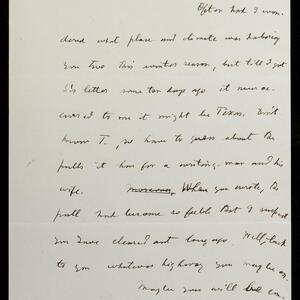 Often had I won-
dered what place and climate was harboring
you two this winter season, but till I got
S's letter some ten days ago it never oc-
curred to me it might be Texas. Don't
know T., so have to guess about the
pulls it has for a writing-man and his
wife. Moreover, When you wrote, the
pull had become so feeble that I suspect
you have cleared out long ago. Well, luck
to you whatever highway you may be on.
Maybe you will be